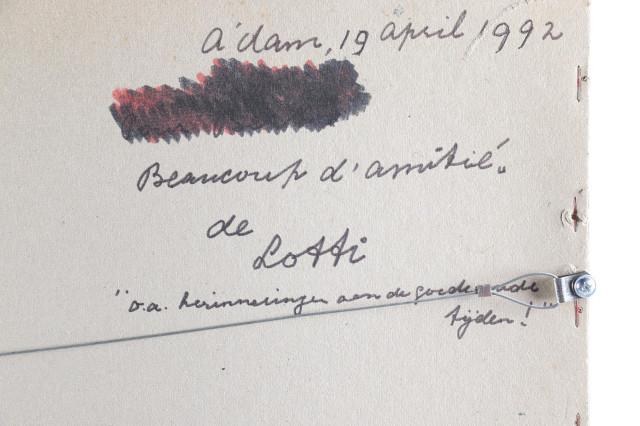 A'dam, 19 april 1992
Beaucoup d'amitié.
de
Lotti
"o.a. herinneringen aan de goede oude
tijden!"